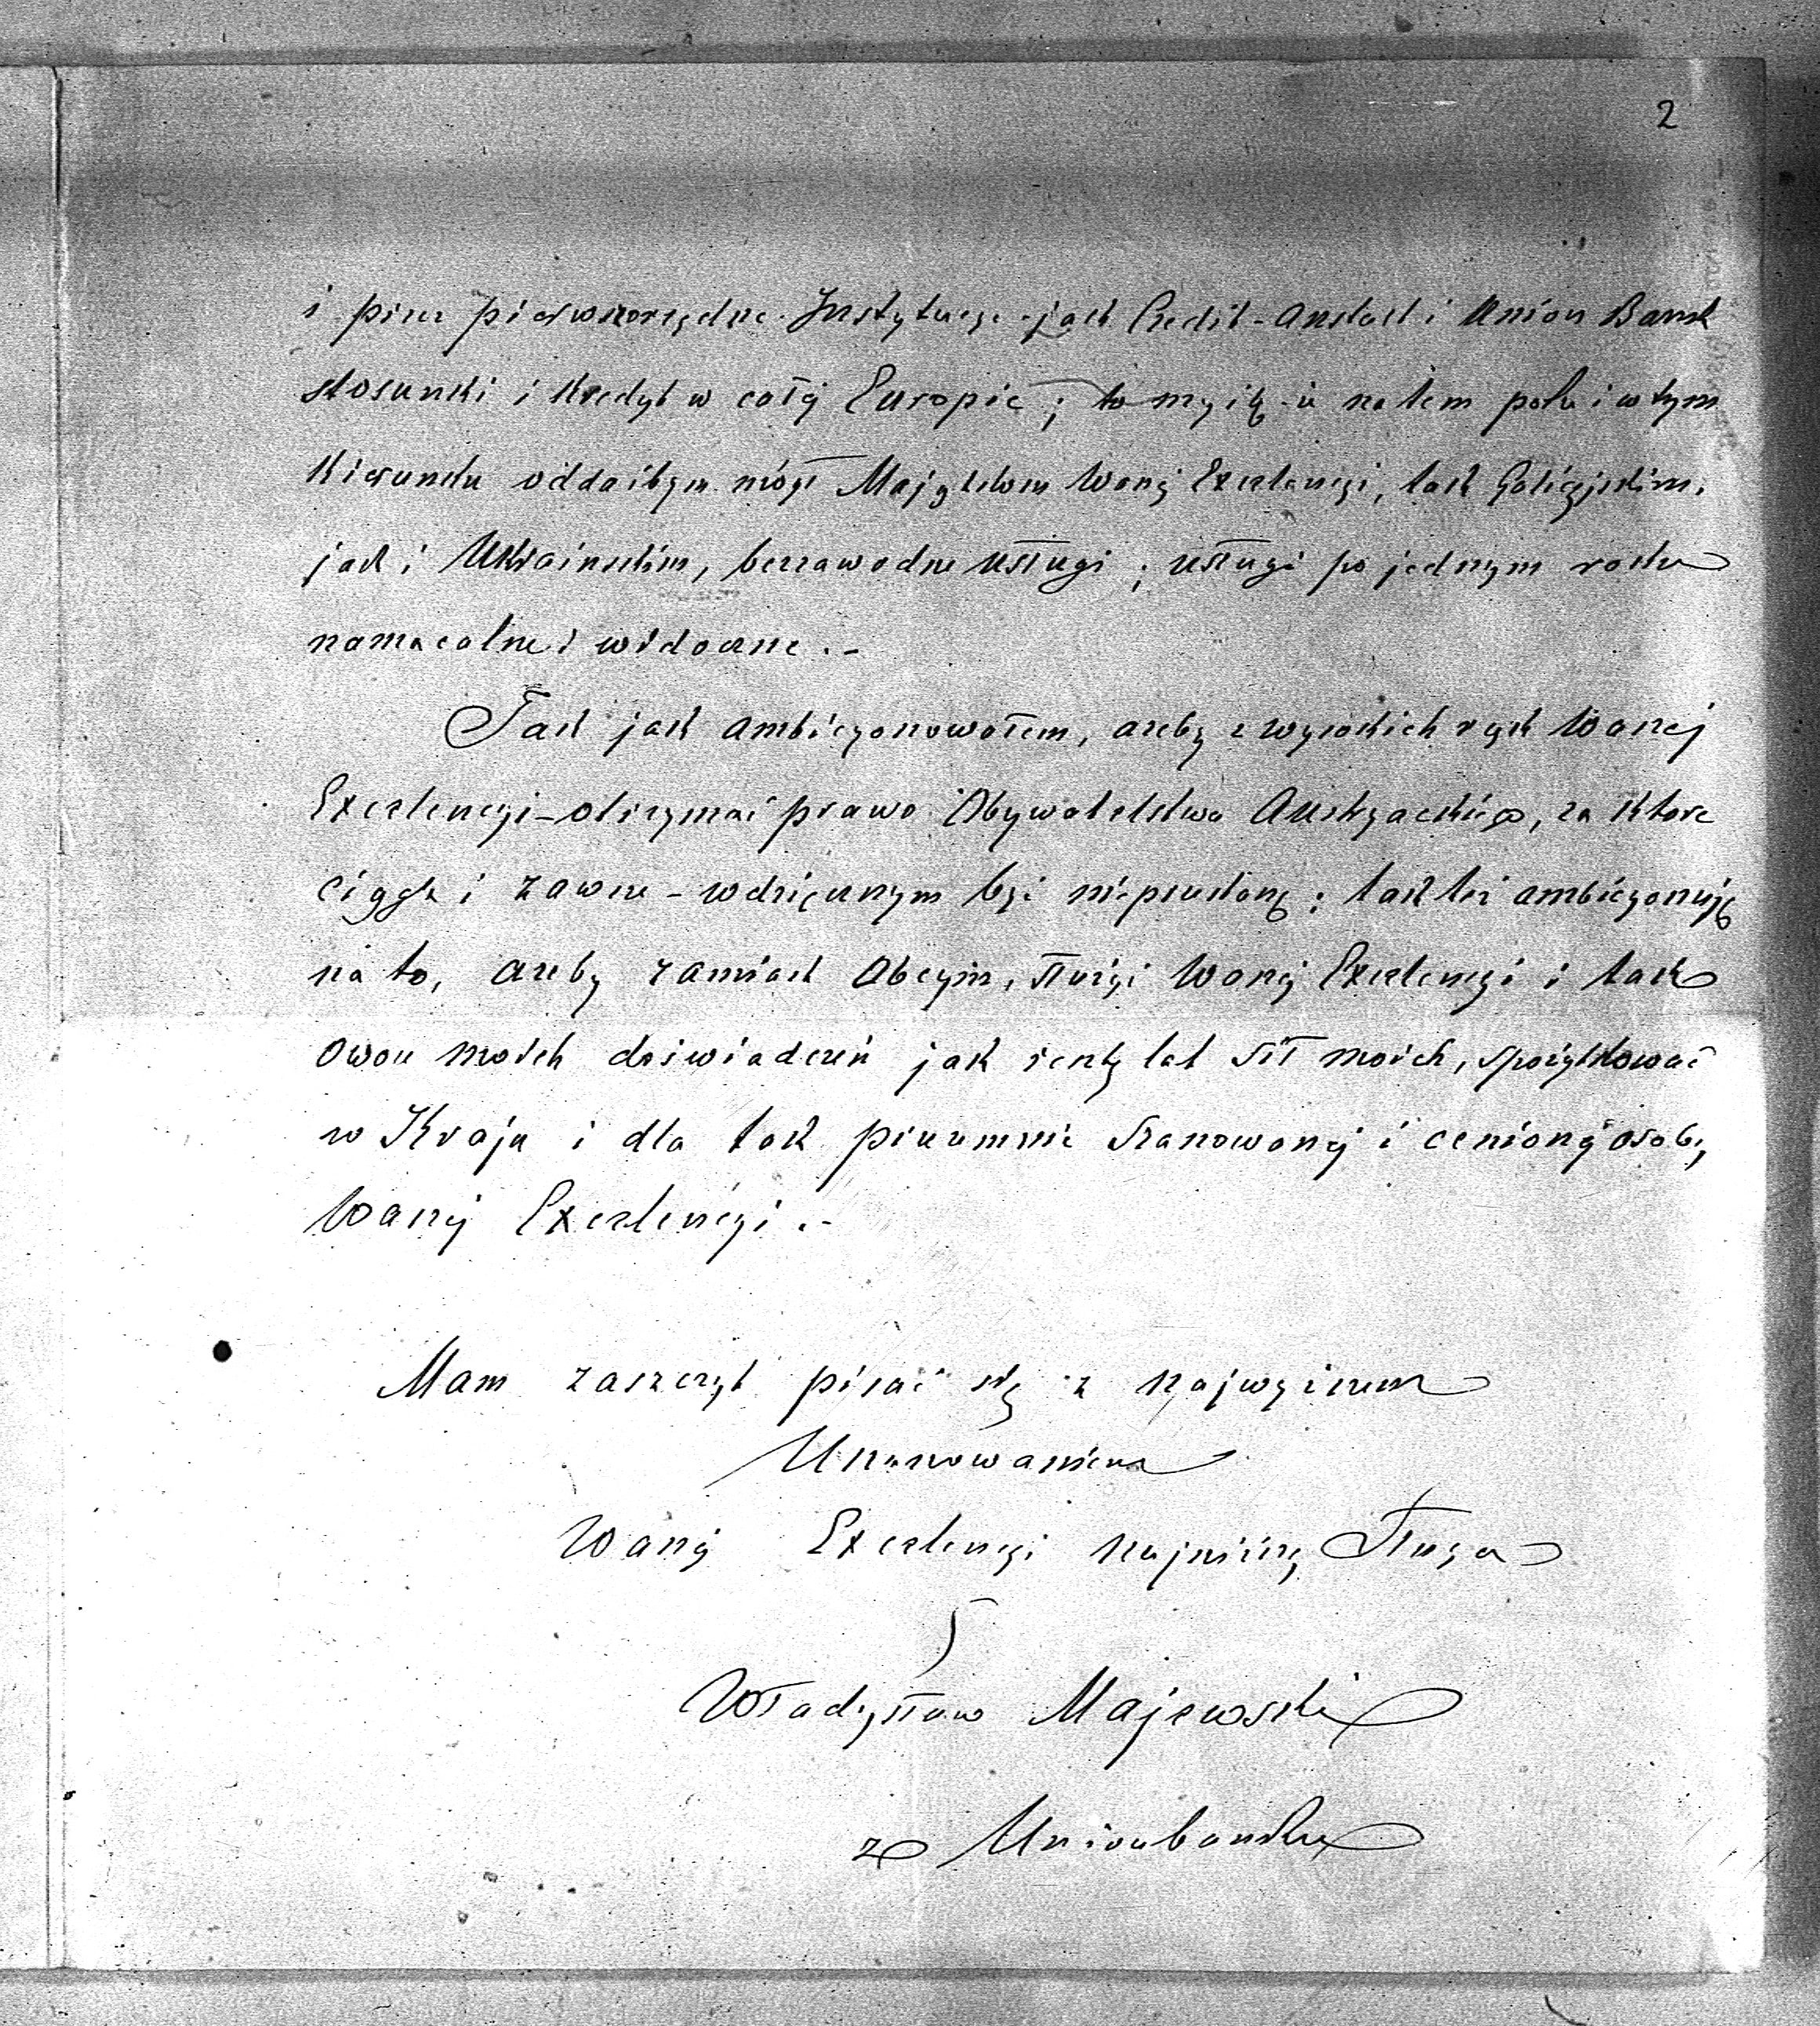 2
i przez pierwszorzędne Instytucye jak Credit-Anstalt i Union Bank
stosunki i kredyt w całej Europie; to myślę że na tem polu i w tym
kierunku oddaćbym mógł Majątkom Waszej Excelencyi, tak Galicyjskim,
jak i Ukraińskim, bezzawodne usługi; usługi po jednym roku
namacalne i widoczne.-
Tak jak ambicyonowałem, ażeby z wysokich rąk Waszej
Excelencyi - otrzymać prawo Obywatelstwa Austryackiego, za które
ciągle i zawsze - wdzięcznym być nieprzestanę; tak też ambicyonuję
na to, ażeby zamiast Obcym, służyć Waszej Excelencyi i tak
owoce moich doświadczeń jak resztę lat sił moich, spożytkować
w Kraju i dla tak przezemnie szanowanej i cenionej osoby
Waszej Excelencyi.-
Mam zaszczyt pisać się z najwyższem
Uszanowaniem
Waszej Excelencyi najniższy Sługa
Władysław Majewski
z Unionbanku